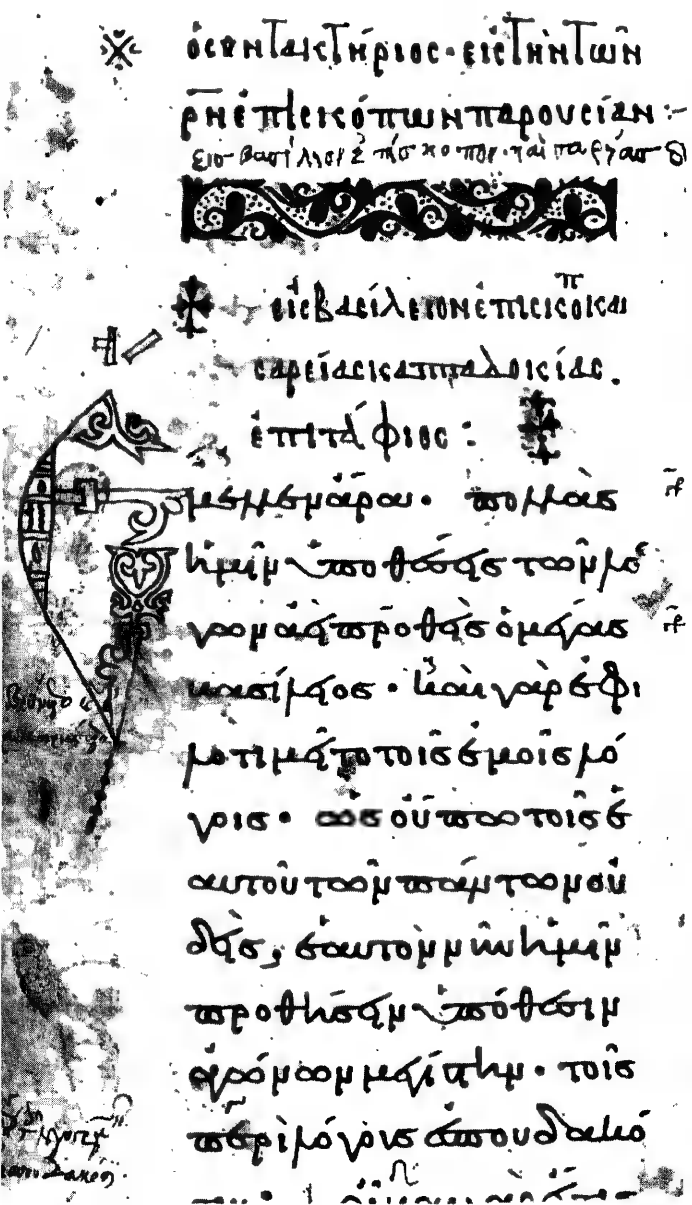 ὁ συντακτήριος· εἰς τὴν τῶν
ρν ἐπισκόπων παρουσίαν :-
εἰς βασίλειον ἐπίσκοπον και
σαρείας καππαδοκίας.
ἐπιτάφιος :
Ἔμελλεν ἄρα· πολλὰς
ἡμῖν ὑποθέσεις τῶν λό
γων ἀεὶ προθεὶς ὁ μέγας
βασίλειος· καὶ γὰρ ἐφι
λοτιμεῖτο τοῖς ἐμοῖς λό
γοις· ὡς οὔπω τοῖς ἑ
αυτοῦ τῶν πάντων οὐ
δείς, ἑαυτὸν νῦν ἡμῖν
προθήσειν ὑπόθεσιν
ἀγώνων μεγίστην· τοῖς
περὶ λόγους ἐσπουδακό